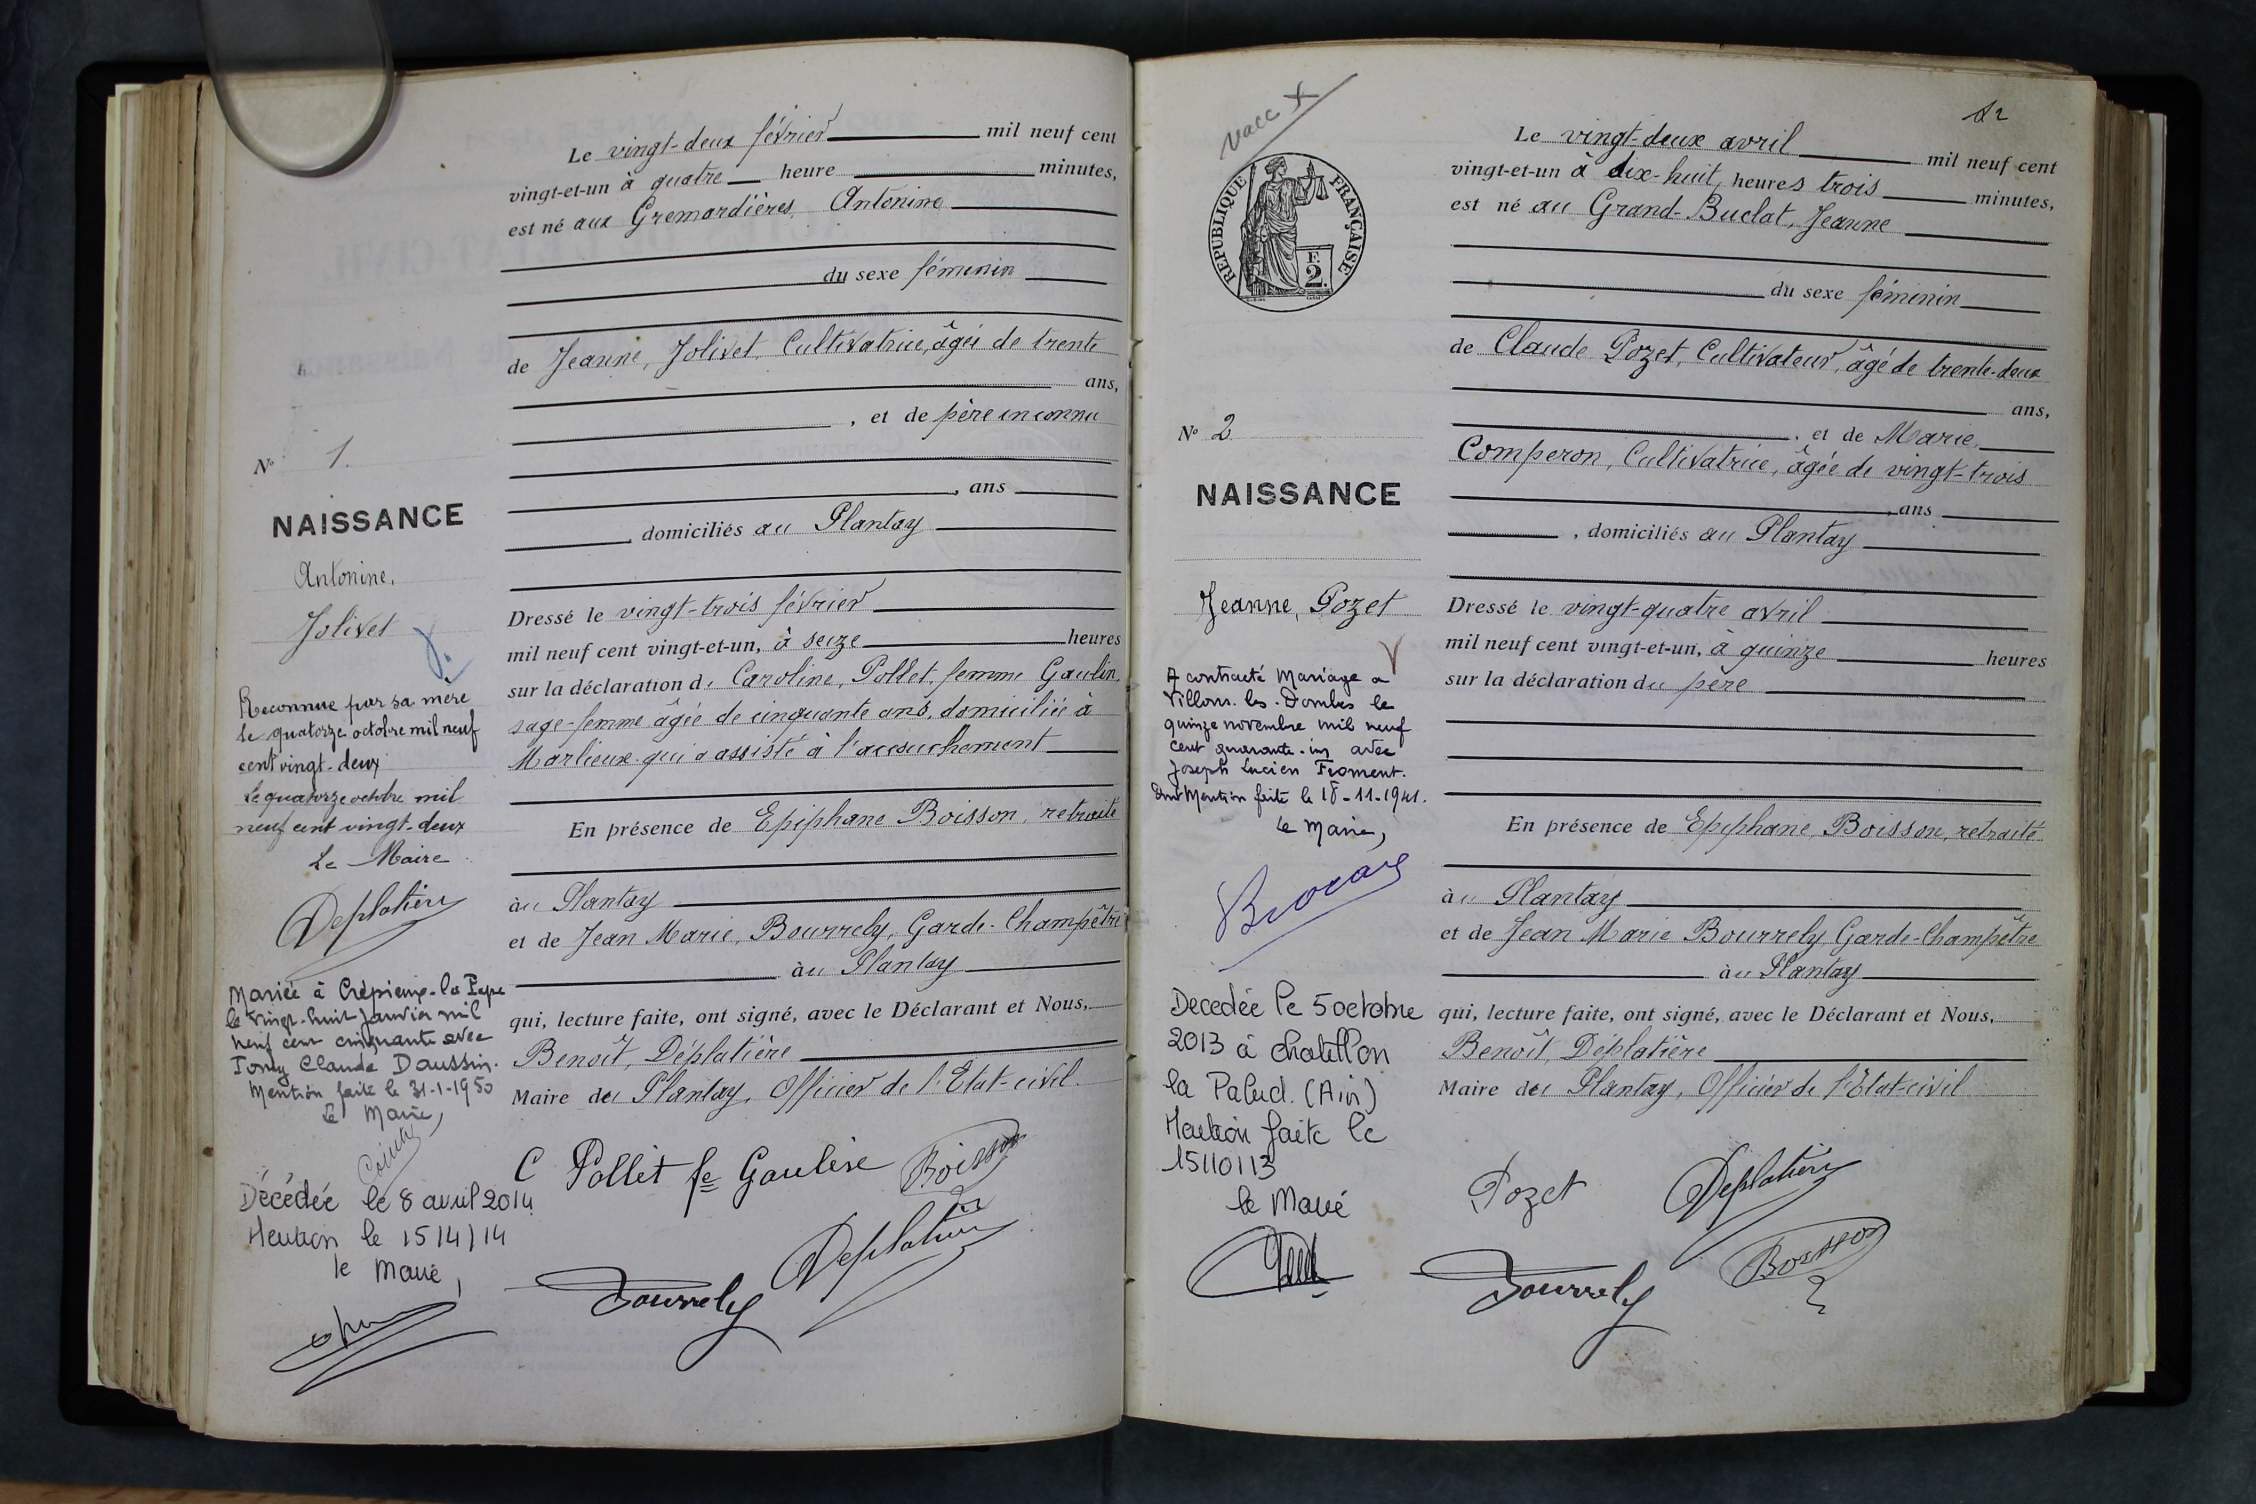 Le vingt-deux février mil neuf cent
vingt-et-un à quatre heure minutes,
est né aux Gremardières, Antonine
du sexe féminin
de Jeanne, Jolivet, Cultivatrice, âgée de trente
ans,
, et de père inconnu
, ans
, domiciliés au Plantay
Dressé le vingt-trois février
mil neuf cent vingt-et-un, à seize heures
sur la déclaration de Caroline, Pollet, femme Gaulin,
sage-femme âgée de cinquante ans, domiciliée à
Marlieux qui a assisté à l'accouchement
En présence de Epiphane Boisson, retraité
au Plantay
et de Jean Marie, Bourrely, Garde-Champêtre
au Plantay
qui, lecture faite, ont signé, avec le Déclarant et Nous,
Benoît, Déplatière
Maire du Plantay, Officier de l'Etat-civil.
C Pollet fe Gaulère Boisson
Bourrely Deplatière
No 1.
NAISSANCE
Antonine,
Jolivet
Reconnue par sa mère
le quatorze octobre mil neuf
cent vingt-deux
Le quatorze octobre mil
neuf cent vingt-deux
Le Maire
Deplatière
Mariée à Crépieux-la Pape
le vingt-huit janvier mil
neuf cent cinquante avec
Tony Claude Daussin.
Mention faite le 31-1-1950
Le Maire,
Décédée le 8 avril 2014
Mention le 15/4/14
le Maire,
Vacc X
12
RÉPUBLIQUE FRANÇAISE
F.
2.
Le vingt-deux avril mil neuf cent
vingt-et-un à dix-huit, heures trois minutes,
est né au Grand-Buclat, Jeanne
du sexe féminin
de Claude Pozet, Cultivateur, âgé de trente-deux
ans,
, et de Marie,
Comperon, Cultivatrice, âgée de vingt-trois
, ans
, domiciliés au Plantay
Dressé le vingt-quatre avril
mil neuf cent vingt-et-un, à quinze heures
sur la déclaration du père
En présence de Epiphane, Boisson, retraité
au Plantay
et de Jean Marie Bourrely Garde-Champêtre
au Plantay
qui, lecture faite, ont signé, avec le Déclarant et Nous,
Benoît, Déplatière
Maire du Plantay, Officier de l'Etat-civil
Pozet Deplatière
Bourrely Boisson
No 2
NAISSANCE
Jeanne, Pozet
A contracté Mariage a
Villars-les-Dombes le
quinze novembre mil neuf
cent quarante-un avec
Joseph Lucien Froment.
Mention faite le 18-11-1941.
Le Maire,
Décédée le 5 octobre
2013 à chatillon
la Palud. (Ain)
Mention faite le
15/10/13
le Maire